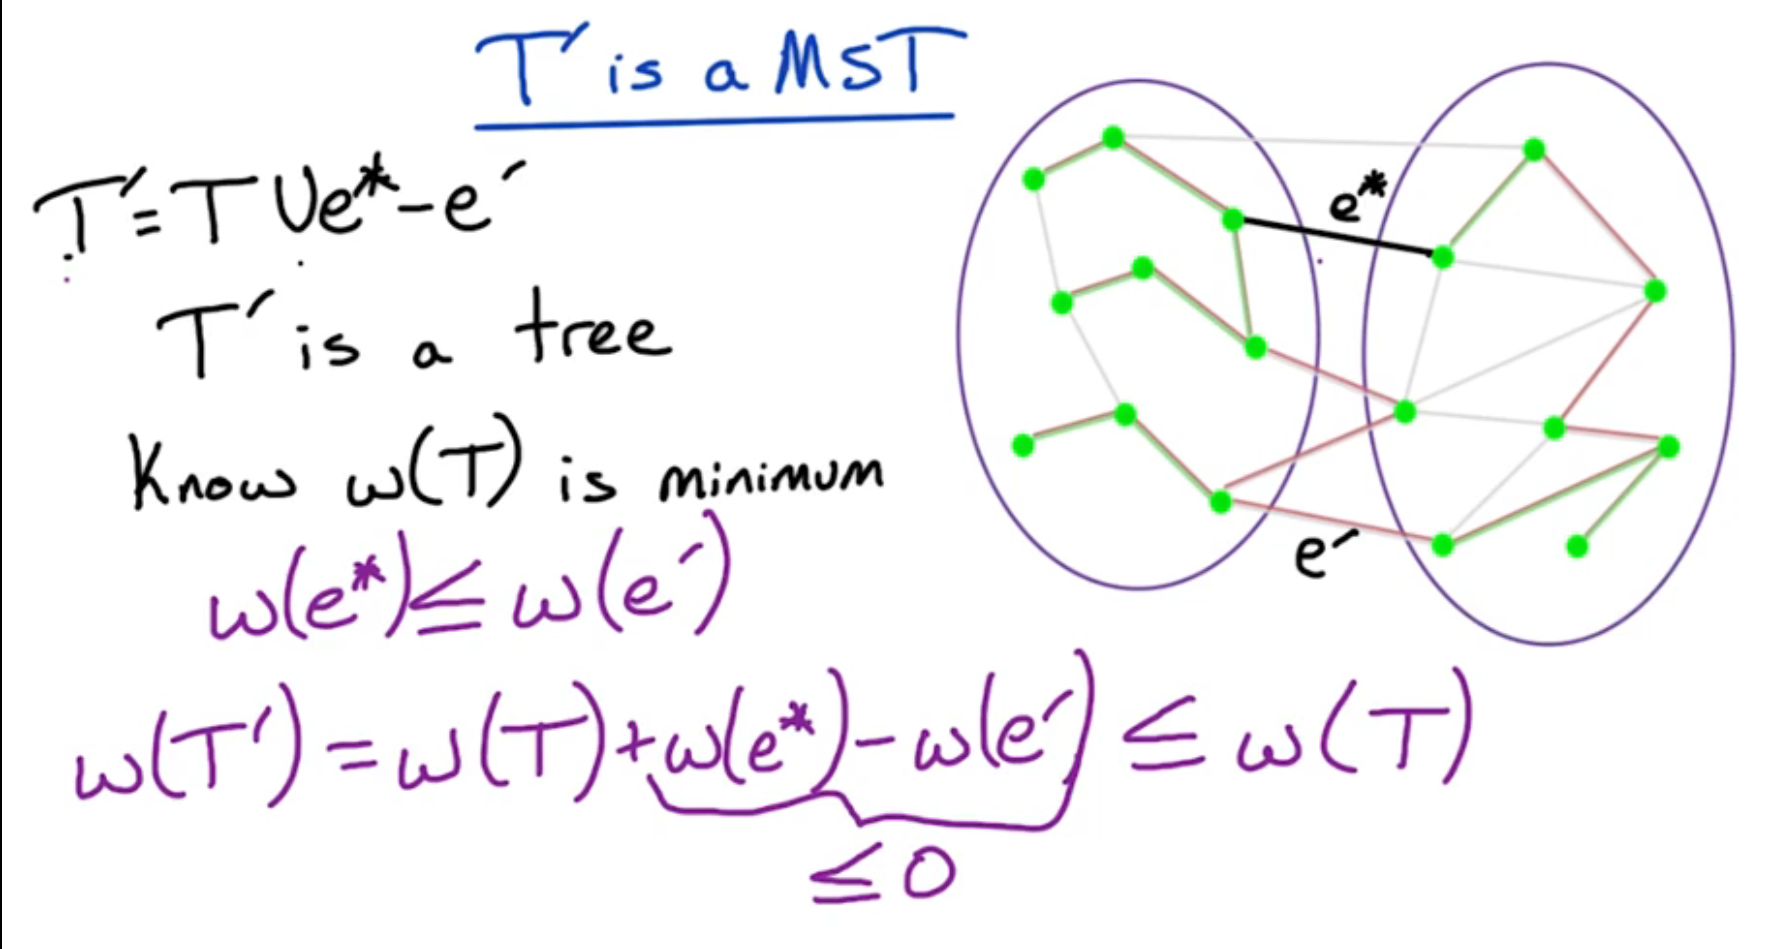 T′ is a MST
T′ = T ∪ e* − e′
T′ is a tree
Know w(T) is minimum
w(e*) ≤ w(e′)
w(T′) = w(T) + w(e*) − w(e′) ≤ w(T)
≤ 0
e*
e′